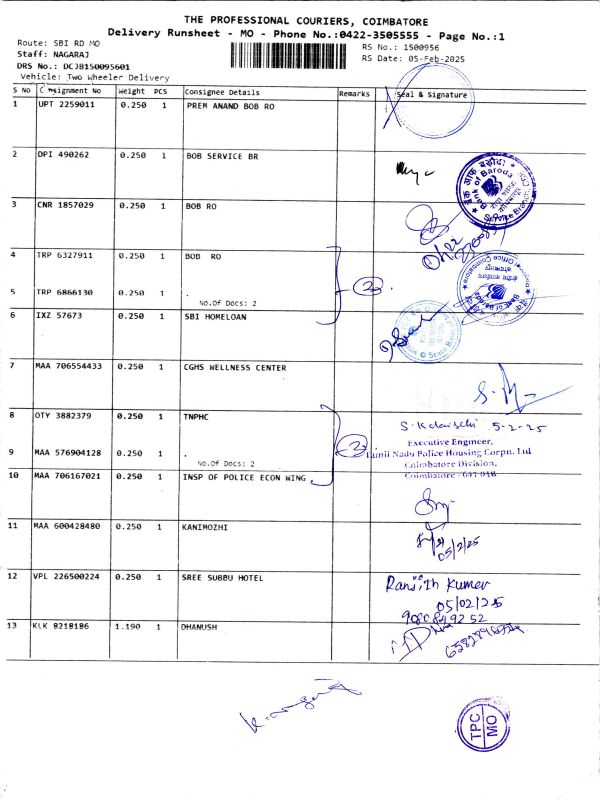 THE PROFESSIONAL COURIERS, COIMBATORE
Delivery Runsheet - MO - Phone No.:0422-3505555 - Page No.:1
Route: SBI RD MO
RS No.: 1500956
Staff: NAGARAJ
RS Date: 05-Feb-2025
DRS No.: DCJB150095601
Vehicle: Two Wheeler Delivery
S No Consignment No Weight PCS Consignee Details Remarks Seal & Signature
1 UPT 2259011 0.250 1 PREM ANAND BOB RO
2 DPI 490262 0.250 1 BOB SERVICE BR
बैंक ऑफ बड़ौदा
Bank of Baroda
Service Branch
3 CNR 1857029 0.250 1 BOB RO
4 TRP 6327911 0.250 1 BOB RO
2
5 TRP 6866130 0.250 1 .
No.Of Docs: 2
6 IXZ 57673 0.250 1 SBI HOMELOAN
7 MAA 706554433 0.250 1 CGHS WELLNESS CENTER
8 OTY 3882379 0.250 1 TNPHC
5-2-25
Executive Engineer,
Tamil Nadu Police Housing Corpn. Ltd
Coimbatore Division,
Coimbatore - 641 018
2
9 MAA 576904128 0.250 1 .
No.Of Docs: 2
10 MAA 706167021 0.250 1 INSP OF POLICE ECON WING
11 MAA 600428480 0.250 1 KANIMOZHI
05/2/25
12 VPL 226500224 0.250 1 SREE SUBBU HOTEL
Ranjith Kumar
05/02/25
13 KLK 8218186 1.190 1 DHANUSH
TPC
MO